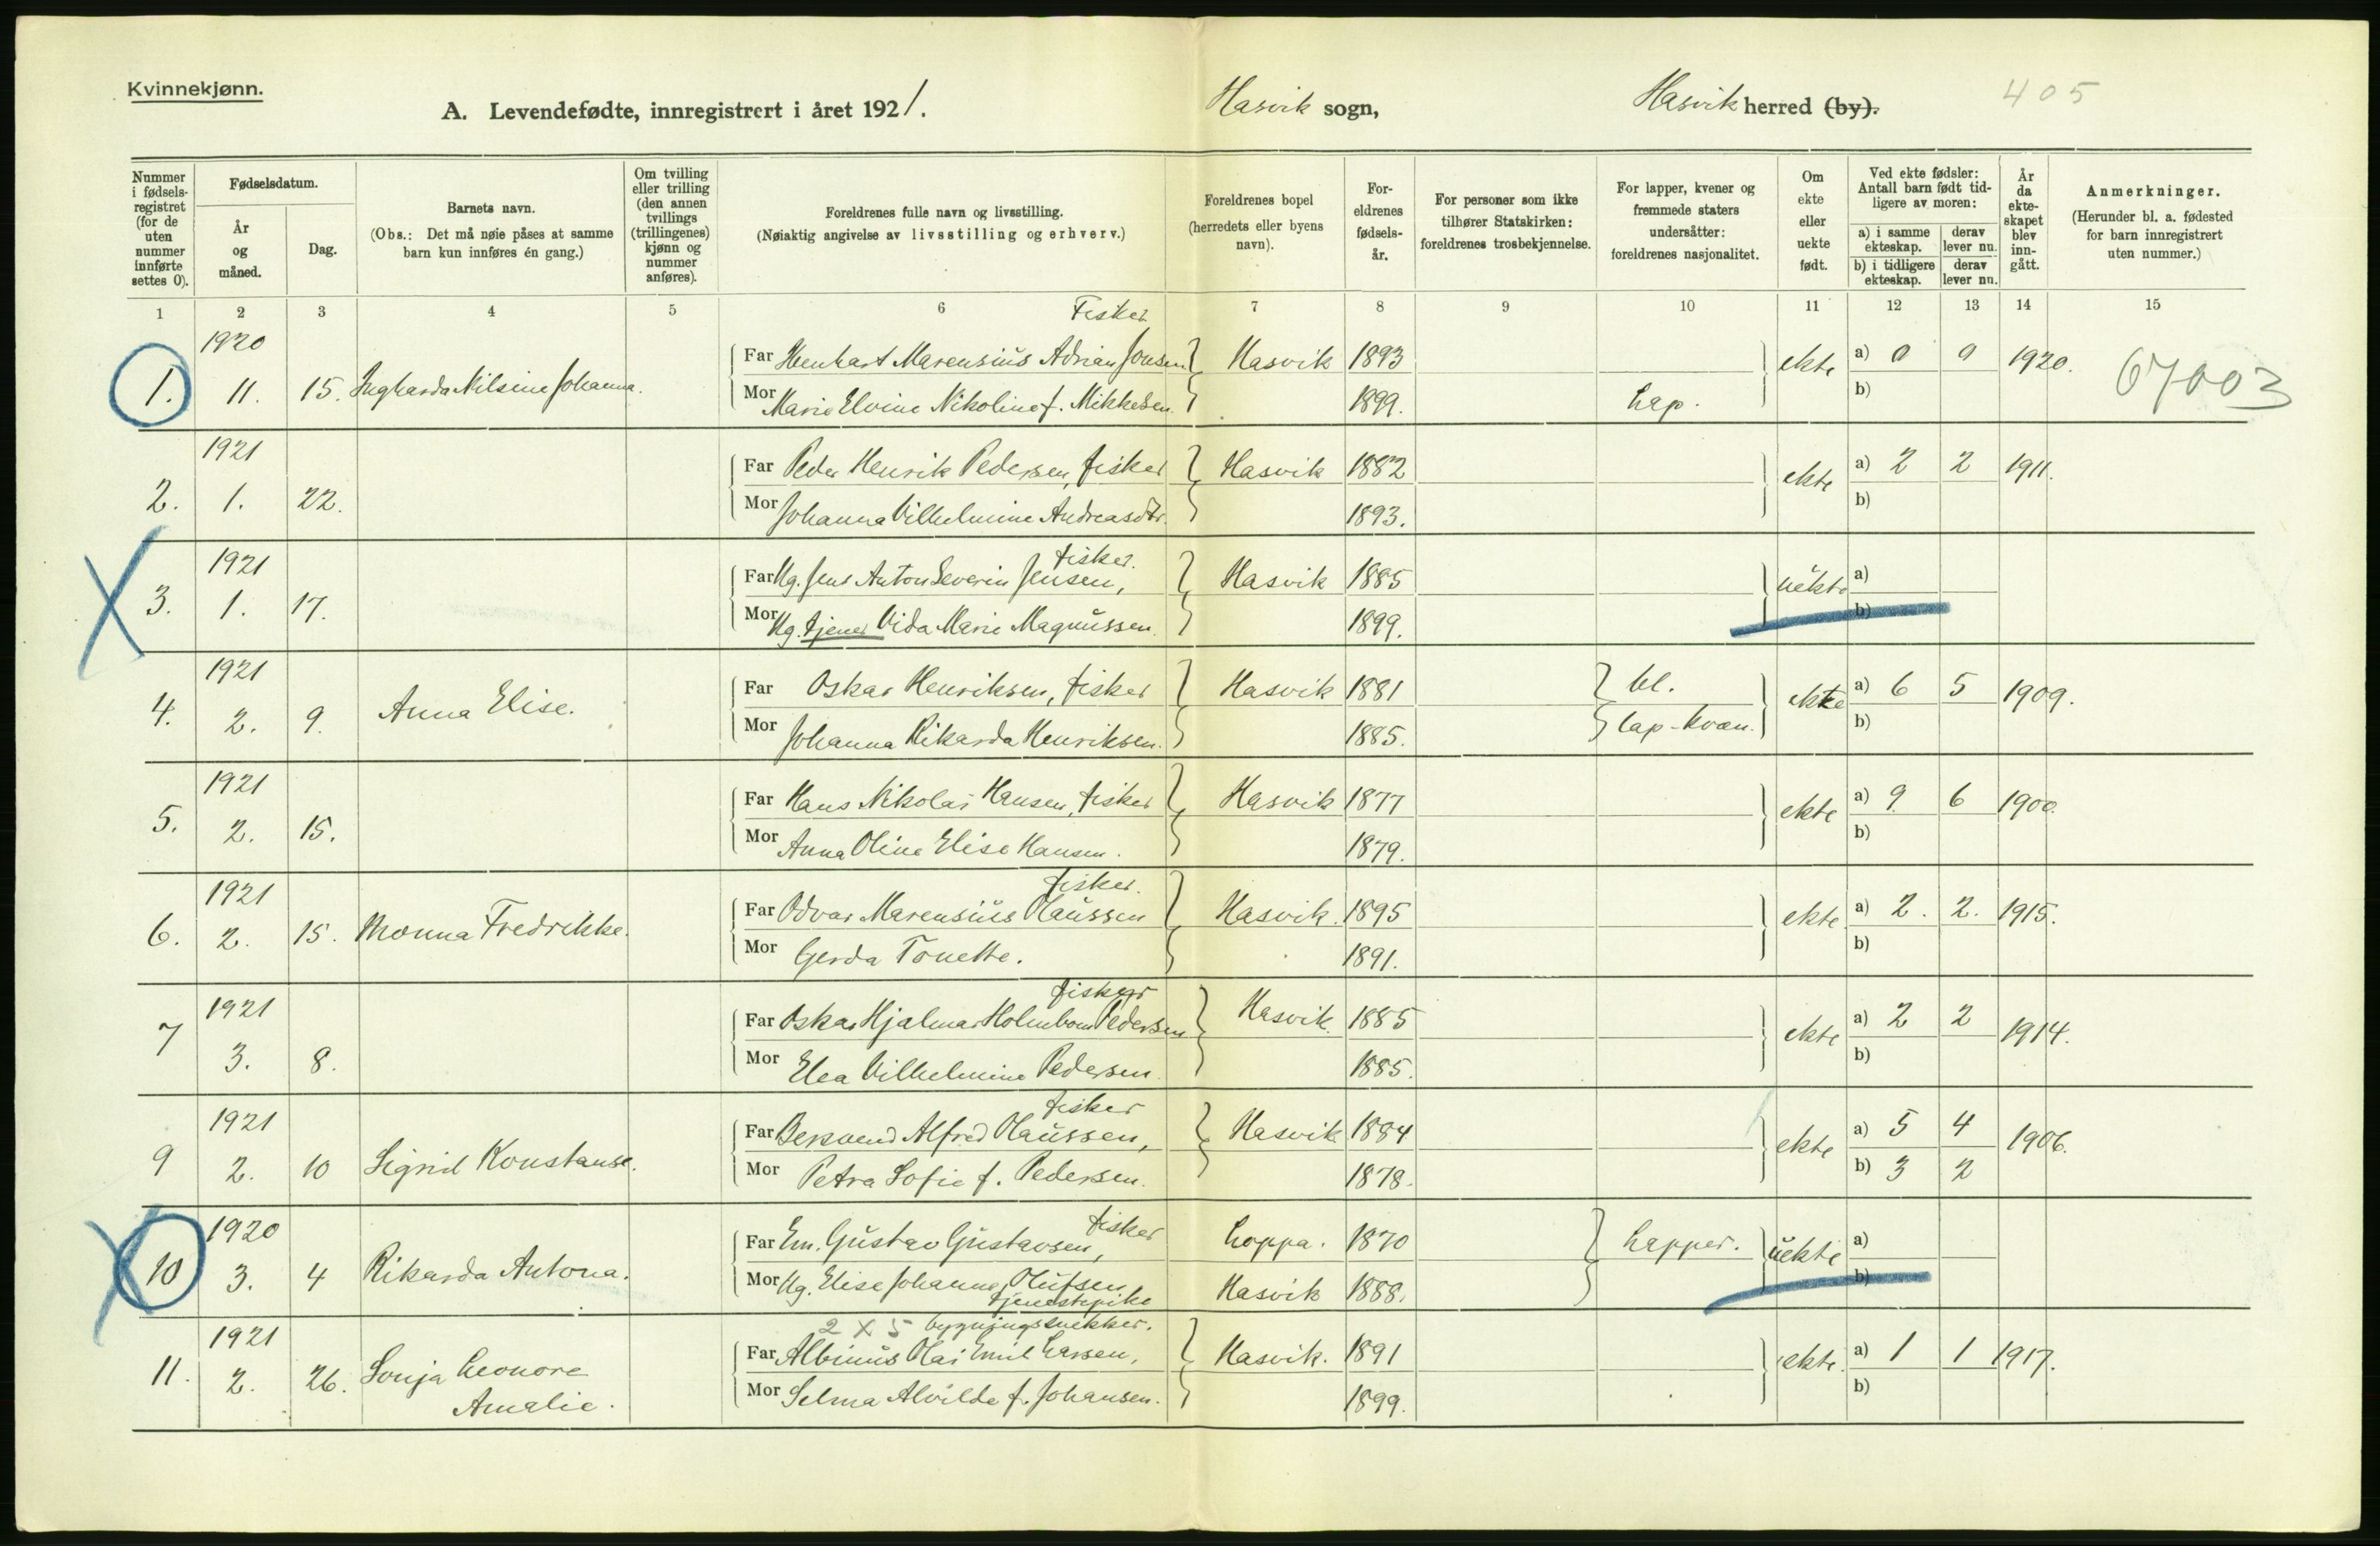 Kvinnekjønn.
A. Levendefødte, innregistrert i året 1921.
Hasvik sogn,
Hasvik herred (by).
405
Nummer i fødsels-registret (for de uten nummer innførte settes 0).
Fødselsdatum.
År og måned.
Dag.
Barnets navn.
(Obs.: Det må nøie påses at samme barn kun innføres én gang.)
Om tvilling eller trilling (den annen tvillings (trillingenes) kjønn og nummer anføres).
Foreldrenes fulle navn og livsstilling.
(Nøiaktig angivelse av livsstilling og erhverv.)
Foreldrenes bopel (herredets eller byens navn).
For-eldrenes fødsels-år.
For personer som ikke tilhører Statskirken: foreldrenes trosbekjennelse.
For lapper, kvener og fremmede staters undersåtter: foreldrenes nasjonalitet.
Om ekte eller uekte født.
Ved ekte fødsler: Antall barn født tid-ligere av moren:
a) i samme ekteskap.
derav lever nu.
b) i tidligere ekteskap.
derav lever nu.
År da ekte-skapet blev inn-gått.
Anmerkninger.
(Herunder bl. a. fødested for barn innregistrert uten nummer.)
1 2 3 4 5 6 7 8 9 10 11 12 13 14 15
1920 Fisker
Far Henhart Marensius Adrian Jonsen Hasvik 1893 ekte a) 0 0 1920.
1. 11. 15. Ingharda Nilsine Johanna.
Mor Marie Elvine Nikoline f. Mikkelsen. 1899. Lap. b)
67003
1921
Far Peder Henrik Pedersen, fisker Hasvik 1882 ekte a) 2 2 1911.
2. 1. 22.
Mor Johanna Vilhelmine Andreasdtr. 1893. b)
1921 fisker.
Far Ug. Jens Anton Severin Jensen, Hasvik 1885 uekte a)
3. 1. 17.
Mor Ug. tjener Vida Marie Magnussen. 1899. b)
1921
Far Oskar Henriksen, fisker Hasvik 1881 bl. ekte a) 6 5 1909.
4. 2. 9. Anna Elise.
Mor Johanna Rikarda Henriksen. 1885. lap-kvæn. b)
1921
Far Hans Nikolai Hansen, fisker Hasvik 1877 ekte a) 9 6 1900.
5. 2. 15.
Mor Anna Oline Elise Hansen. 1879. b)
1921 fisker.
Far Odvar Marensius Olaussen Hasvik. 1895 ekte a) 2. 2. 1915.
6. 2. 15. Monna Fredrikke.
Mor Gerda Tonette. 1891. b)
1921 fisker
Far Oskar Hjalmar Holmbom Pedersen Hasvik. 1885 ekte a) 2 2 1914.
7 3. 8.
Mor Elea Vilhelmine Pedersen. 1885. b)
1921 fisker
Far Bersvend Alfred Olaussen, Hasvik 1884 ekte a) 5 4 1906.
9 2. 10 Sigrid Konstanse.
Mor Petra Sofie f. Pedersen. 1878. b) 3 2
1920 fisker
Far Em. Gustav Gustavsen, Loppa. 1870 Lapper. uekte a)
10 3. 4 Rikarda Antona.
Mor Ug. Elise Johanna Olufsen, Hasvik 1888. b)
tjenestepike
2 x 5 bygningssnekker.
1921
Far Albinus Olai Emil Larsen, Hasvik. 1891 ekte. a) 1 1 1917.
11. 2. 26. Sonja Leonore
Amalie.
Mor Selma Alvilde f. Johansen. 1899. b)